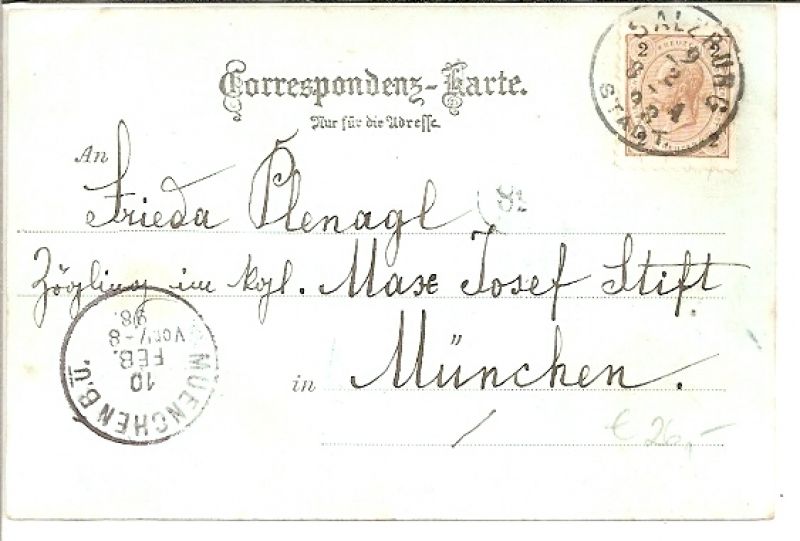 SALZBURG
STADT
2 2
Correspondenz-Karte.
Nur für die Adresse.
An
Frieda Plenagl
Zögling im kgl. Max Josef Stift
in München.
MUENCHEN B.U.
10
FEB.
98.
€ 26,-